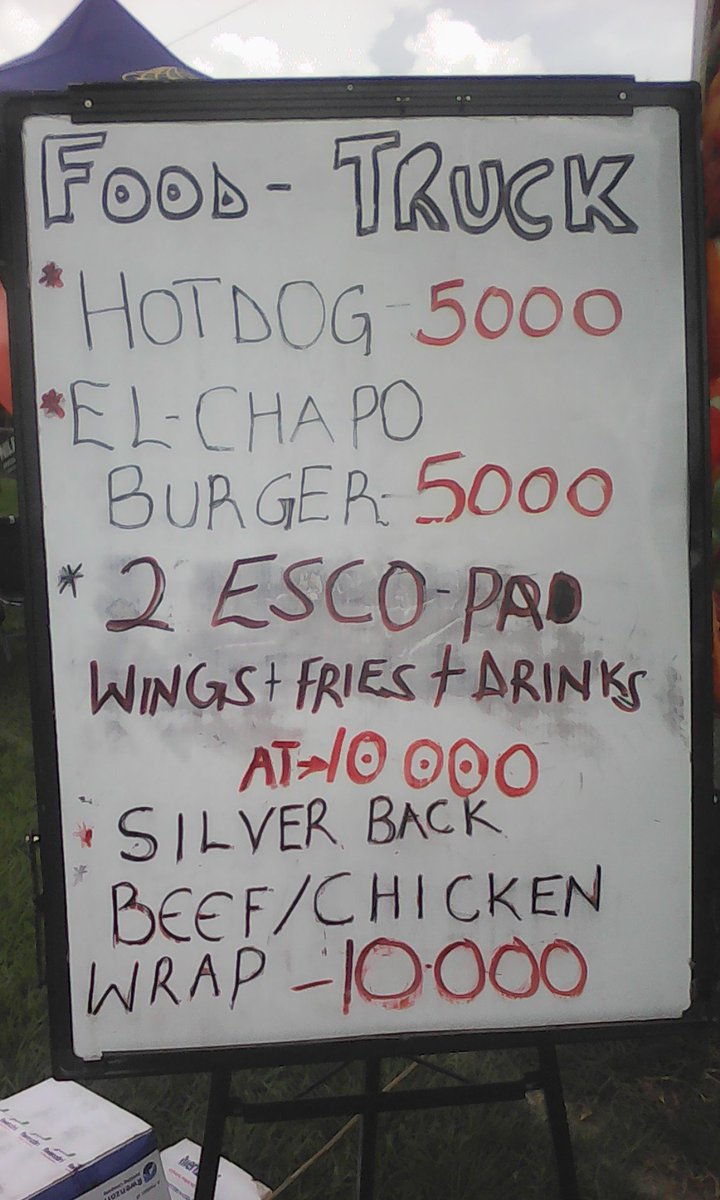 FOOD - TRUCK
* HOTDOG - 5000
* EL-CHAPO
BURGER - 5000
* 2 ESCO-PAD
WINGS + FRIES + DRINKS
AT → 10 000
* SILVER BACK
BEEF/CHICKEN
WRAP - 10.000